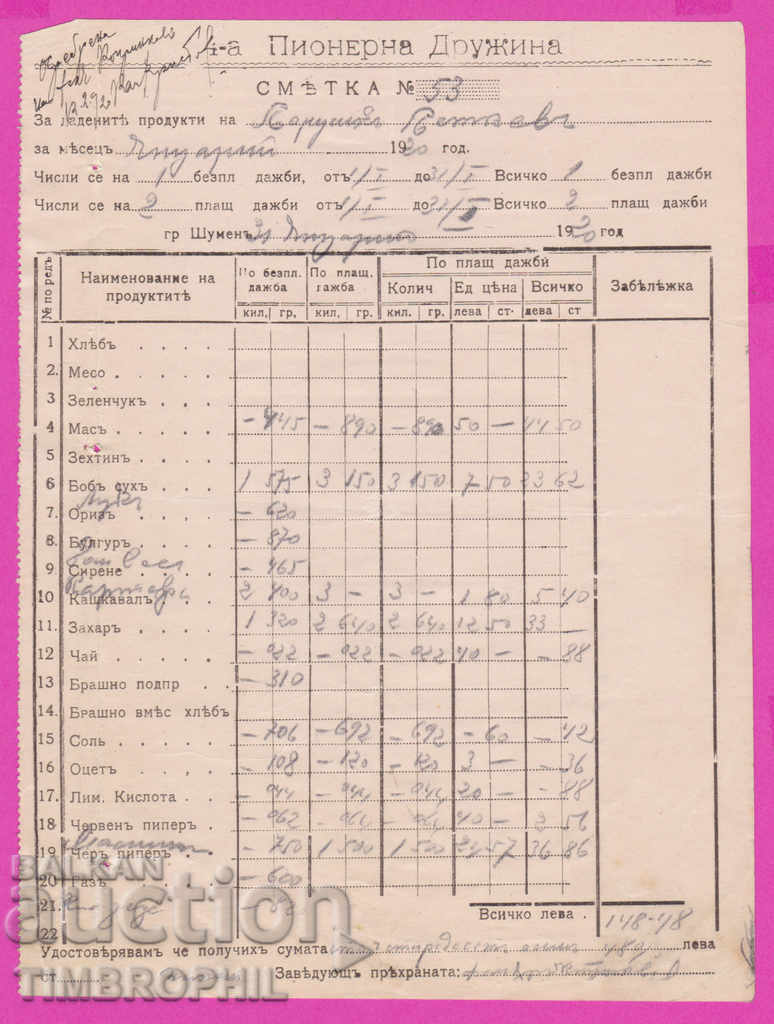 4-а Пионерна Дружина
СМѢТКА № 53
За дадените продукти на
за мѣсецъ Януарий 1920 год.
Числи се на 1 безпл дажби, отъ 1/I до 31/I Всичко 1 безпл дажби
Числи се на 2 плащ дажби отъ 1/I до 31/I Всичко 2 плащ дажби
гр Шуменъ 31 Януарий 1920 год
№ по редъ Наименование на продуктитѣ По безпл. дажба По плащ. дажба По плащ дажби Забѣлѣжка
Колич Ед цѣна Всичко
кил. гр. кил. гр. кил. гр. лева ст. лева ст
1 Хлѣбъ
2. Месо
3 Зеленчукъ
4 Масъ - 445 - 890 - 890 50 - 44 50
5 Зехтинъ
6 Бобъ сухъ 1 575 3 150 3 150 7 50 23 62
7. Оризъ Лукъ - 620
8. Булгуръ - 870
9 Сирене - 465
10 Кашкавалъ Картофи 2 400 3 - 3 - 1 80 5 40
11. Захаръ 1 320 2 640 2 640 12 50 33 -
12 Чай - 022 - 022 - 022 40 - - 88
13 Брашно подпр - 310
14. Брашно вмѣс хлѣбъ
15 Соль - 706 - 692 - 692 - 60 - 42
16 Оцетъ - 108 - 120 - 120 3 - - 36
17. Лим. Кислота - 044 - 044 - 044 20 - - 88
18 Червен пиперъ - 062 - 064 - 064 40 - 2 56
19 Чер. пиперъ - 750 1 500 1 500 24 57 36 86
20 Газъ - 600
21.
22
Всичко лева . 148-48
Удостовѣрявам че получихъ сумата лева
ст Заведующъ прѣхраната:
BALKAN
auction
TIMBROPHIL